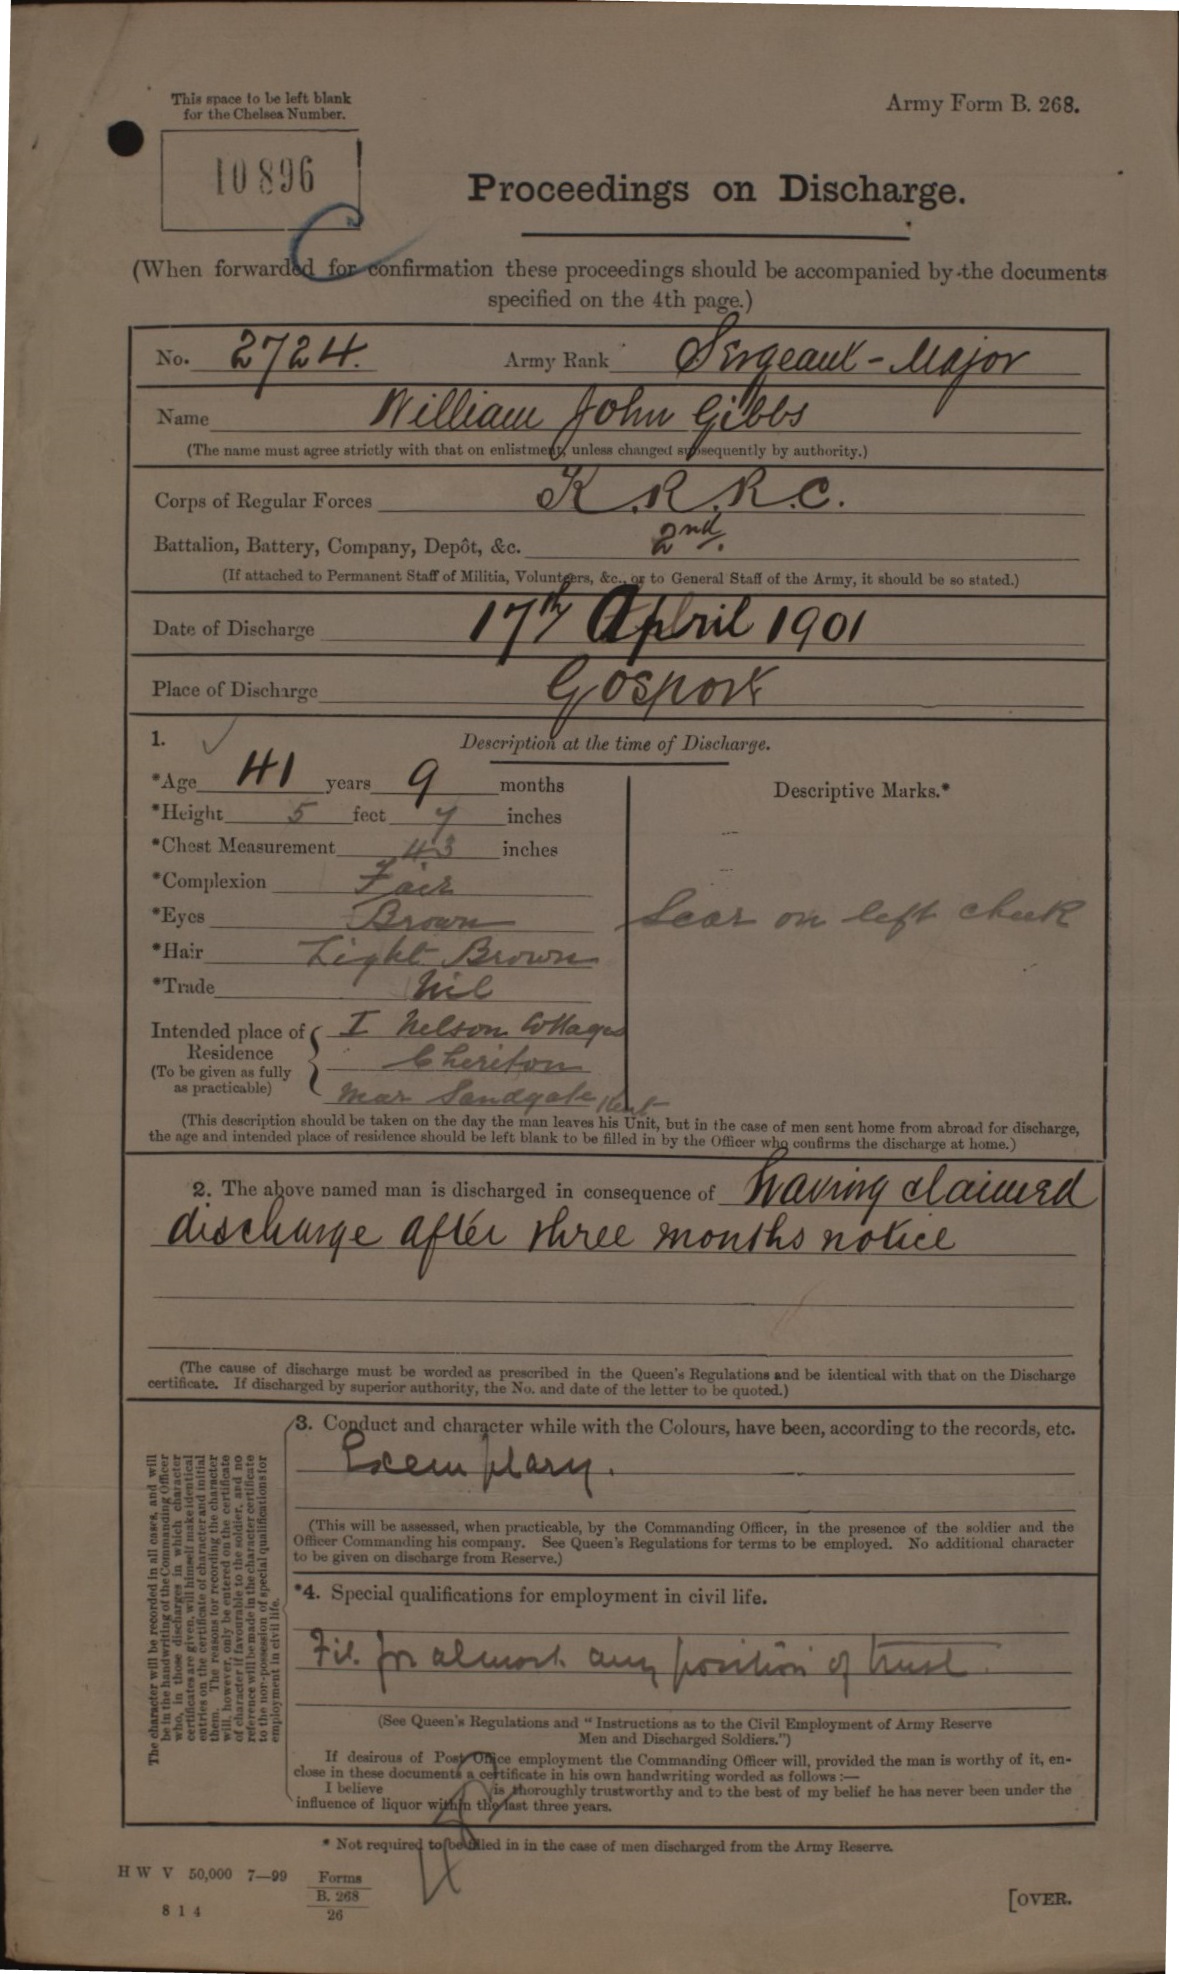 This space to be left blank
for the Chelsea Number.
Army Form B. 268.
10896
Proceedings on Discharge.
C
(When forwarded for confirmation these proceedings should be accompanied by the documents
specified on the 4th page.)
No. 2724. Army Rank Sergeant-Major
Name William John Gibbs
(The name must agree strictly with that on enlistment, unless changed subsequently by authority.)
Corps of Regular Forces K.R.R.C.
Battalion, Battery, Company, Depôt, &c. 2nd.
(If attached to Permanent Staff of Militia, Volunteers, &c., or to General Staff of the Army, it should be so stated.)
Date of Discharge 17th April 1901
Place of Discharge Gosport
1. Description at the time of Discharge.
*Age 41 years 9 months
Descriptive Marks.*
*Height 5 feet 7 inches
*Chest Measurement 43 inches
*Complexion Fair
*Eyes Brown
Scar on left cheek
*Hair Light Brown
*Trade Nil
Intended place of Residence (To be given as fully as practicable)
1 Nelson Cottages
Cheriton
near Sandgate Kent
(This description should be taken on the day the man leaves his Unit, but in the case of men sent home from abroad for discharge,
the age and intended place of residence should be left blank to be filled in by the Officer who confirms the discharge at home.)
2. The above named man is discharged in consequence of having claimed
discharge after three months notice
(The cause of discharge must be worded as prescribed in the Queen's Regulations and be identical with that on the Discharge
certificate. If discharged by superior authority, the No. and date of the letter to be quoted.)
The character will be recorded in all cases, and will
be in the handwriting of the Commanding Officer
who, in those discharges in which character
certificates are given, will himself make identical
entries on the certificate of character and initial
them. The reasons for recording the character
will, however, only be entered on the certificate
of character if favourable to the soldier, and no
reference will be made in the character certificate
to the non-possession of special qualifications for
employment in civil life.
3. Conduct and character while with the Colours, have been, according to the records, etc.
Exemplary.
(This will be assessed, when practicable, by the Commanding Officer, in the presence of the soldier and the
Officer Commanding his company. See Queen's Regulations for terms to be employed. No additional character
to be given on discharge from Reserve.)
*4. Special qualifications for employment in civil life.
Fit for almost any position of trust.
(See Queen's Regulations and "Instructions as to the Civil Employment of Army Reserve
Men and Discharged Soldiers.")
If desirous of Post Office employment the Commanding Officer will, provided the man is worthy of it, en-
close in these documents a certificate in his own handwriting worded as follows:—
I believe is thoroughly trustworthy and to the best of my belief he has never been under the
influence of liquor within the last three years.
* Not required to be filled in in the case of men discharged from the Army Reserve.
H W V 50,000 7—99 Forms
B. 268
26
8 1 4
[OVER.